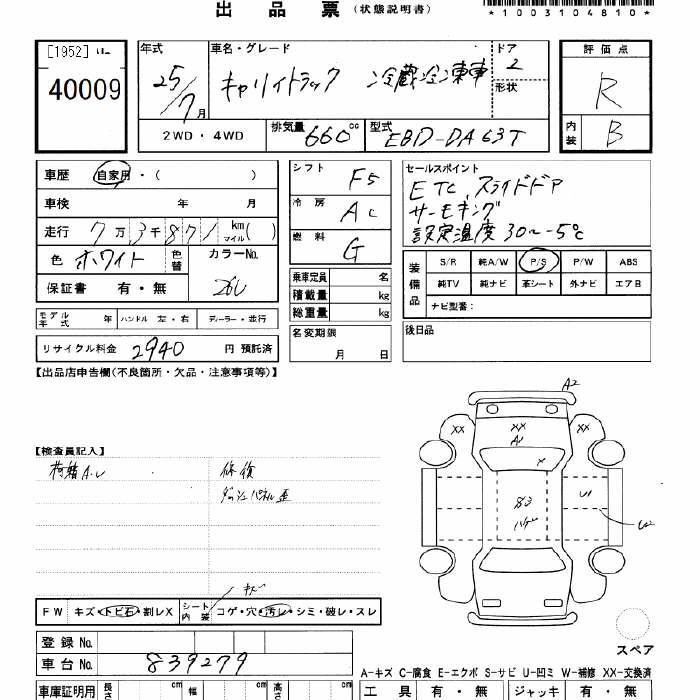 出品票（状態説明書）
*1003104810*
[1952]
40009
年式 車名・グレード ドア 評価点
25/7月 キャリイトラック 冷蔵冷凍車 2
形状
R
2WD・4WD 排気量 660cc 型式 EBD-DA63T
内装 B
車歴 自家用・（ ）
車検 年 月
走行 7万3千871 km マイル( )
色 ホワイト 色替 カラーNo. 26U
保証書 有・無
シフト F5
冷房 AC
燃料 G
乗車定員 名
積載量 kg
総重量 kg
セールスポイント
ETC スライドドア
サーモキング
設定温度 30〜-5℃
装備品 S/R 純A/W P/S P/W ABS
純TV 純ナビ 革シート 外ナビ エアB
ナビ型番：
モデル年式 年 ハンドル 左・右 ディーラー・並行
名変期限 月 日
後日品
リサイクル料金 2940 円 預託済
【出品店申告欄(不良箇所・欠品・注意事項等)】
【検査員記入】
荷箱A.U 修復
ダッシュパネル歪
A2
XX XX XX
A1
X
83
ハゲ
U1
U2
キズ
FW キズ・トビ石・割レX シート内装 コゲ・穴・汚レ・シミ・破レ・スレ
スペア
登録No.
車台No. 839279
A-キズ C-腐食 E-エクボ S-サビ U-凹ミ W-補修 XX-交換済
車庫証明用 長さ cm 幅 cm 高さ cm 工具 有・無 ジャッキ 有・無